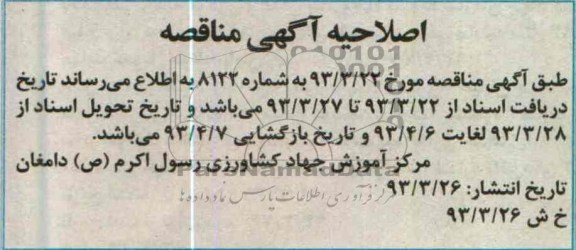 اصلاحیه آگهی مناقصه
طبق آگهی مناقصه مورخ ۹۳/۳/۲۲ به شماره ۸۱۲۲ به اطلاع می‌رساند تاریخ
دریافت اسناد از ۹۳/۳/۲۲ تا ۹۳/۳/۲۷ می‌باشد و تاریخ تحویل اسناد از
۹۳/۳/۲۸ لغایت ۹۳/۴/۶ و تاریخ بازگشایی ۹۳/۴/۷ می‌باشد.
مرکز آموزش جهاد کشاورزی رسول اکرم (ص) دامغان
تاریخ انتشار: ۹۳/۳/۲۶
خ ش ۹۳/۳/۲۶
ParsNamadData
مرکز فرآوری اطلاعات پارس نماد داده‌ها